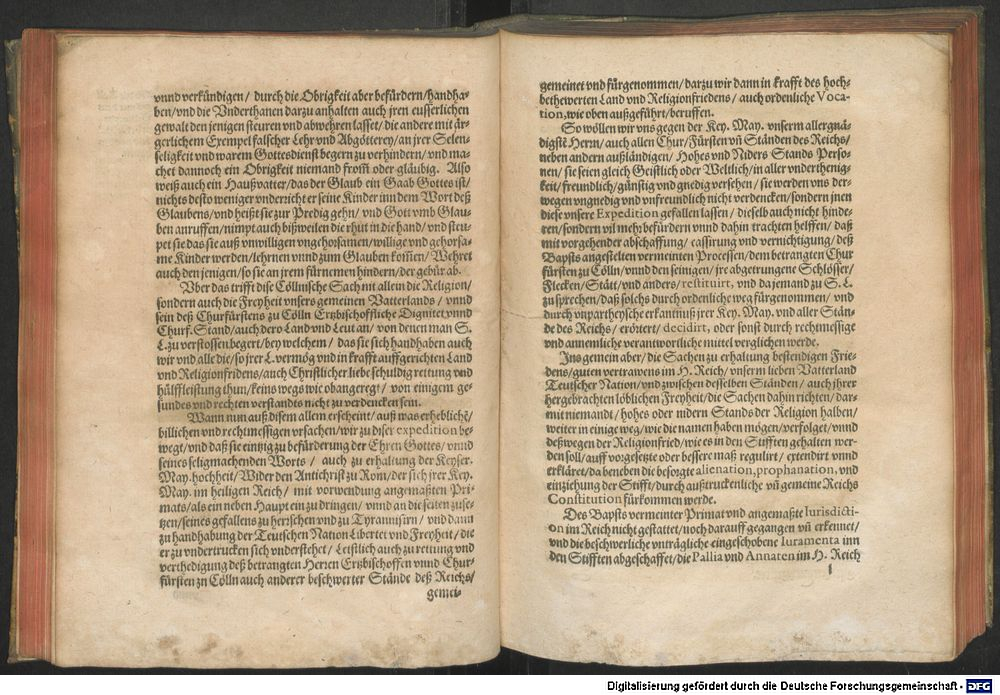 vnnd verkündigen/ durch die Obrigkeit aber befürdern/handha-
ben/vnd die Vnderthanen darzu anhalten auch jren eusserlichen
gewalt den jenigen steuren vnd abwehren lasset/die andere mit är-
gerlichem Exempel falscher Lehr vnd Abgötterey/an jrer Selen-
seligkeit vnd warem Gottesdienst begern zu verhindern/vnd ma-
chet dannoch ein Obrigkeit niemand from oder gläubig. Also
weiß auch ein Haußvatter/das der Glaub ein Gaab Gottes ist/
nichts desto weniger vnderricht er seine Kinder inn dem Wort deß
Glaubens/vnd heißt sie zur Predig gehn/ vnd Gott vmb Glau-
ben anruffen/nimpt auch bißweilen die rhut in die hand/ vnd steu-
pet sie das sie auß vnwilligen vngehorsamen/willige vnd gehorsa-
me Kinder werden/lehrnen vnnd zum Glauben kommen/ Wehret
auch den jenigen/so sie an jrem fürnemen hindern/der gebür ab.
Vber das trifft dise Cöllnische Sach nit allein die Religion/
sondern auch die Freyheit vnsers gemeinen Vatterlands/ vnnd
sein deß Churfürstens zu Cölln Ertzbischoffliche Dignitet vnnd
Churf. Stand/auch dero Land vnd Leut an/ von denen man S.
L. zu verstossen begert/bey welchem/ das sie sich handhaben auch
wir vnd alle die/so jrer L. vermög vnd in krafft auffgerichten Land
vnd Religionfridens/auch Christlicher liebe schuldig rettung vnd
hülffleistung thun/keins wegs wie obangeregt/ von einigem ge-
sundes vnd rechten verstandts nicht zu verdencken sein.
Wann nun auß disem allem erscheint/auß was erhebliche͂
billichen vnd rechtmessigen vrsachen/wir zu diser expedition be-
wegt/vnd daß sie eintzig zu befürderung der Ehren Gottes/ vnnd
seines seligmachenden Worts/ auch zu erhaltung der Keyser.
May. hochheit/Wider den Antichrist zu Rom/der sich jrer Key.
May. im heiligen Reich/ mit vorwendung angemaßten Pri-
mats/als ein neben Haupt ein zu dringen/ vnnd an die seiten zu se-
tzen/seines gefallens zu herrschen vnd zu Tyrannisirn/ vnd dann
zu handhabung der Teutschen Nation Libertet vnd Freyheit/ die
er zu vndertrucken sich vnderstehet/ Letstlich auch zu rettung vnd
verthedigung deß betrangten Herren Ertzbischoffen vnnd Chur-
fürsten zu Cölln auch anderer beschwerter Stände deß Reichs/
gemei-
gemeinet vnd fürgenommen/darzu wir dann in krafft des hoch-
bethewerten Land vnd Religionfriedens/ auch ordenliche Voca-
tion, wie oben außgeführt/beruffen.
So wöllen wir vns gegen der Key. May. vnserm allergnä-
digste Herrn/auch allen Chur/Fürsten vn͂ Ständen des Reichs/
neben andern außländigen/ Hohes vnd Niders Stands Perso-
nen/sie seien gleich Geistlich oder Weltlich/in aller vnderthenig-
keit/freundlich/günstig vnd gnedig versehen/sie werden vns der-
wegen vngnedig vnd vnfreundlich nicht verdencken/sondern jnen
diese vnsere Expedition gefallen lassen/ dieselb auch nicht hinde-
ren/sondern vil mehr befürdern vnnd dahin trachten helffen/ daß
mit vorgehender abschaffung/ cassirung vnd vernichtigung/ deß
Bapsts angestelten vermeinten Processen/dem betrangten Chur
fürsten zu Cölln/vnnd den seinigen/ jre abgetrungene Schlösser/
Flecken/Stätt/vnd anders/restituirt, vnd da jemand zu S. L.
zu sprechen/daß solchs durch ordenliche weg fürgenommen/ vnd
durch vnpartheysche erkantnuß jrer Key. May. vnd aller Stän-
de des Reichs/ erörtert/decidirt, oder sonst durch rechtmessige
vnd annemliche verantwortliche mittel verglichen werde.
Ins gemein aber/die Sachen zu erhaltung bestendigen Frie-
dens/guten vertrawens im H. Reich/ vnserm lieben Vatterland
Teutscher Nation/vnd zwischen desselben Ständen/ auch jhrer
hergebrachten löblichen Freyheit/die Sachen dahin richten/dar-
mit niemandt/ hohes oder nidern Stands der Religion halben/
weiter in einige weg/wie die namen haben mögen/verfolget/vnnd
deßwegen der Religionfried/wie es in den Stifften gehalten wer-
den soll/auff vorgesetzte oder bessere maß regulirt/ extendirt vnnd
erkläret/da beneben die besorgte alienation, prophanation, vnd
einziehung der Stifft/durch außtruckenliche vn͂ gemeine Reichs
Constitution fürkommen werde.
Des Bapsts vermeinter Primat vnd angemaßte Iurisdicti-
on im Reich nicht gestattet/noch darauff gegangen vn͂ erkennet/
vnd die beschwerliche vnträgliche eingeschobene Iuramenta inn
den Stifften abgeschaffet/die Pallia vnd Annaten im H. Reich
Digitalisierung gefördert durch die Deutsche Forschungsgemeinschaft - DFG